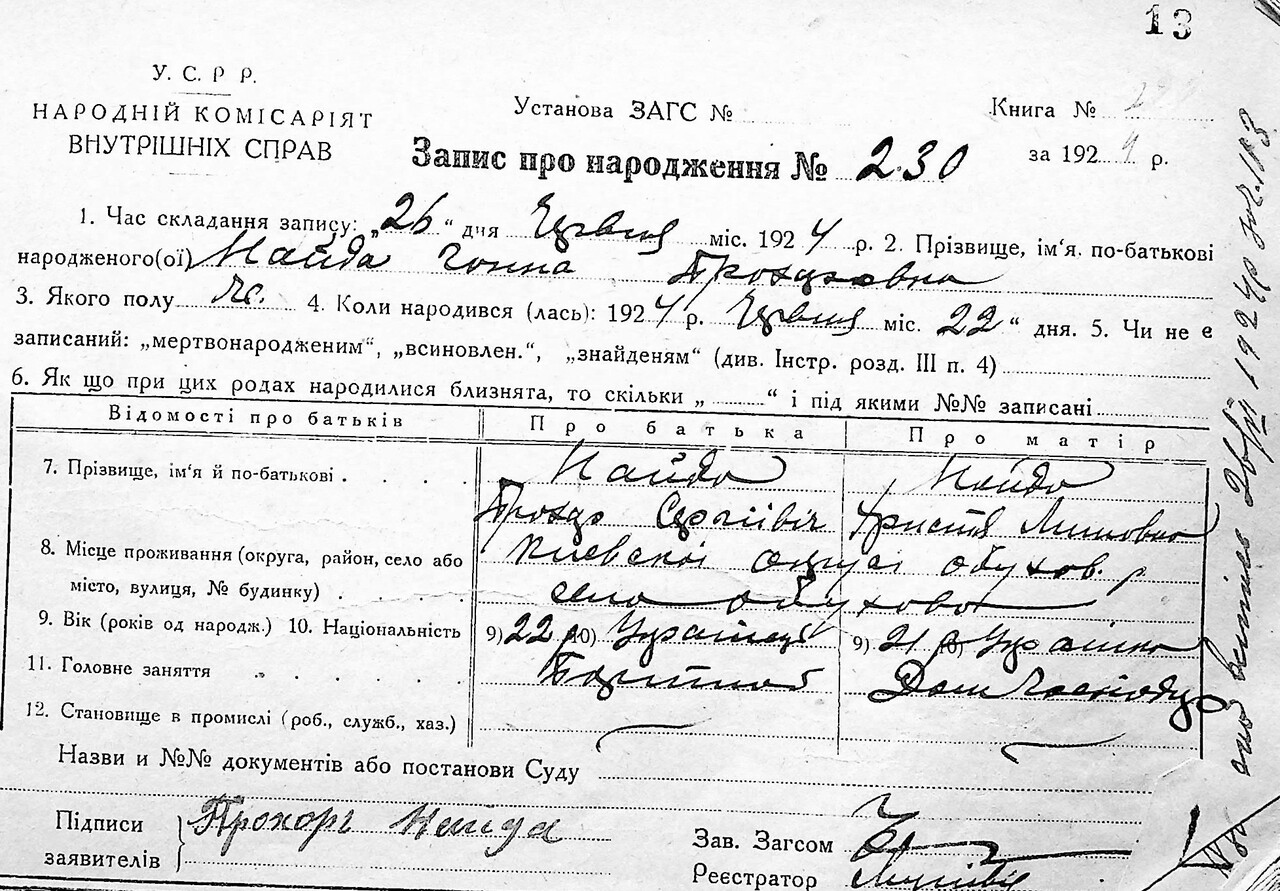 13
У. С. Р Р.
НАРОДНІЙ КОМІСАРІЯТ
ВНУТРІШНІХ СПРАВ
Установа ЗАГС №
Книга №
Запис про народження № 230
за 1924 р.
1. Час складання запису: „26“ дня Червня міс. 1924 р. 2. Прізвище, ім'я, по-батькові
народженого(ої) Найда Ганна Прохоровна
3. Якого полу ж. 4. Коли народився (лась): 1924 р. Червня міс. 22“ дня. 5. Чи не є
записаний: „мертвонародженим“, „всиновлен.“, „знайденям“ (див. Інстр. розд. III п. 4)
6. Як що при цих родах народилися близнята, то скільки „ “ і під якими №№ записані
Відомості про батьків Про батька Про матір
7. Прізвище, ім'я й по-батькові Найда Найда
Прохор Сергіівіч Христя
8. Місце проживання (округа, район, село або Киевскоі округі обухов. р
місто, вулиця, № будинку) село обухово
9. Вік (років од народж.) 10. Національність 9) 22 р 10) Украінец 9) 21 р 10) Украінка
11. Головне заняття Дом
12. Становище в промислі (роб., служб., хаз.)
Назви и №№ документів або постанови Суду
Підписи
заявителів
Прохоръ Найда
Зав. Загсом
Реєстратор
1924р